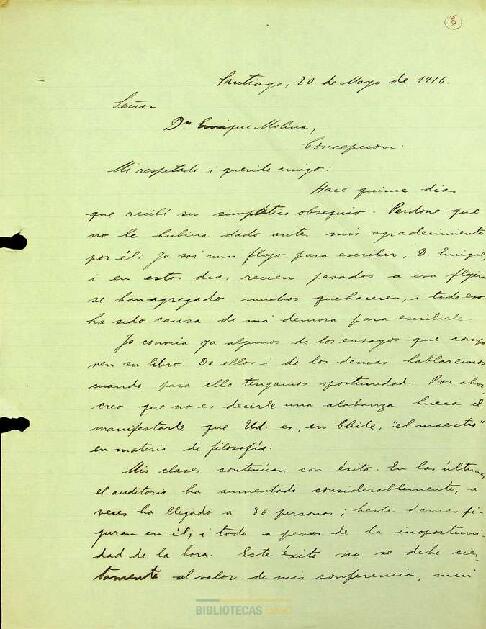 6
Santiago, 20 de Mayo de 1916.
Señor
Dn Enrique Molina,
Concepcion.
Mi respetado i querido amigo:
Hace quince dias
que recibí su simpático obsequio. Perdone que
no le hubiera dado antes mis agradecimientos
por él: yo soi mui flojo para escribir, D. Enrique,
i en estos dias recien pasados a esa flojera
se han agregado muchos quehaceres, i todo eso
ha sido causa de mi demora para escribirle.
Yo conocia ya algunos de los ensayos que compo
nen su libro. De ellos i de los demas hablaremos
cuando para ello tengamos oportunidad. Por ahora
creo que no es decirle una alabanza el
manifestarle que Ud es, en Chile, "el maestro"
en materia de filosofía.
Mis clases continúan con éxito. En las últimas
el auditorio ha aumentado considerablemente, a
veces ha llegado a 30 personas; hasta damas fi-
guran en él, i todo a pesar de la inoportuni-
dad de la hora. Este éxito no se debe cier-
tamente al valor de mis conferencias, sino
BIBLIOTECAS